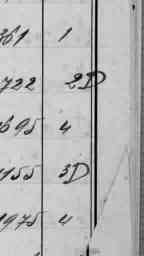 361 1
722 2D
695 4
1155 3D
1975 4